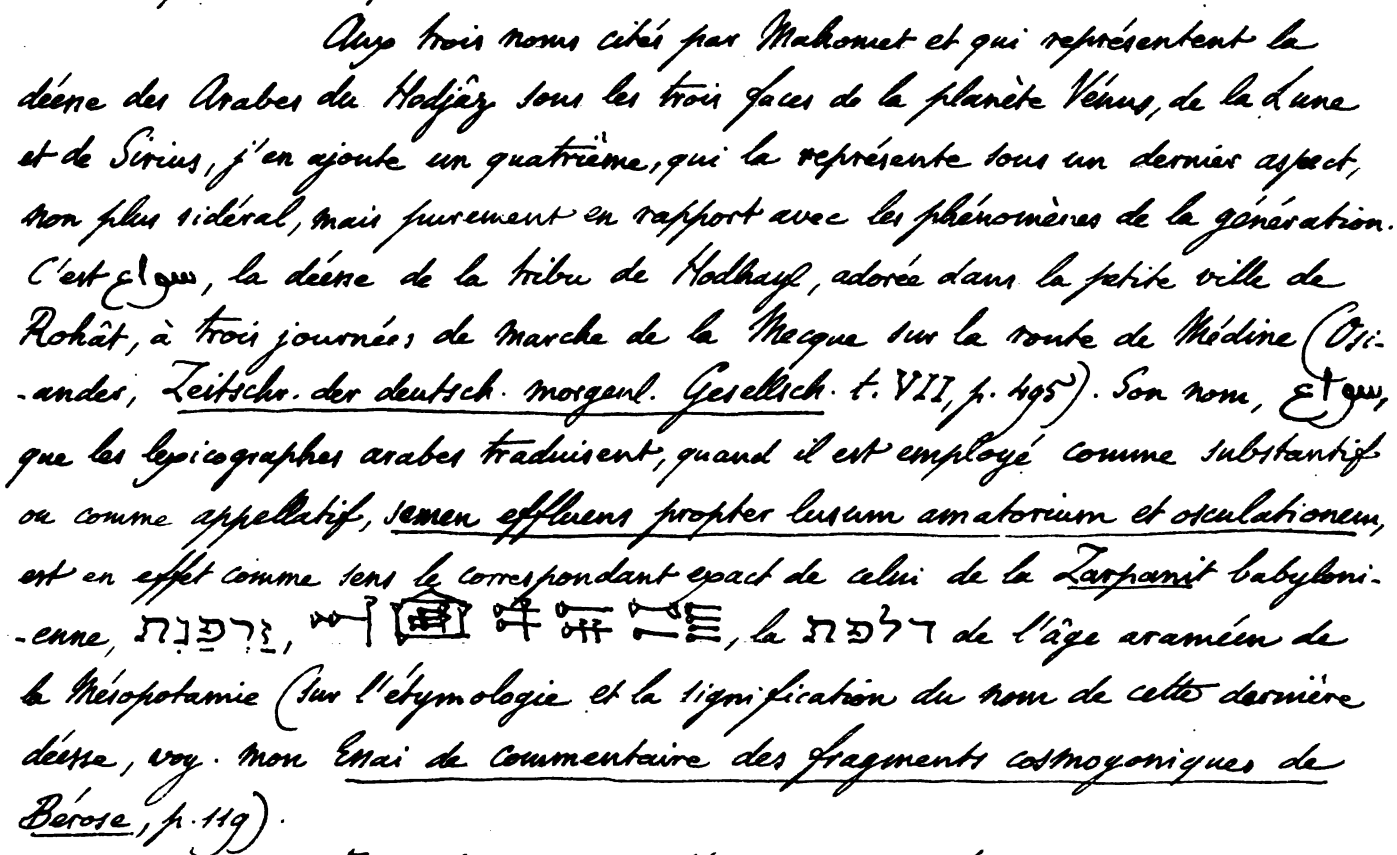 Aux trois noms cités par Mahomet et qui représentent la
déesse des Arabes du Hedjâz sous les trois faces de la planète Vénus, de la Lune
et de Sirius, j'en ajoute un quatrième, qui la représente sous un dernier aspect,
non plus sidéral, mais purement en rapport avec les phénomènes de la génération.
C'est سواع, la déesse de la tribu de Hodhayl, adorée dans la petite ville de
Rohât, à trois journées de marche de la Mecque sur la route de Médine (Osi-
-ander, Zeitschr. der deutsch. morgenl. Gesellsch. t. VII, p. 495). Son nom, سواع,
que les lexicographes arabes traduisent, quand il est employé comme substantif
ou comme appellatif, semen effluens propter lusum amatorium et osculationem,
est en effet comme sens le correspondant exact de celui de la Zarpanit babyloni-
-enne, זִרְפַּנִת, la דלפת de l'âge araméen de
la Mésopotamie (sur l'étymologie et la signification du nom de cette dernière
déesse, voy. mon Essai de commentaire des fragments cosmogoniques de
Bérose, p. 119).